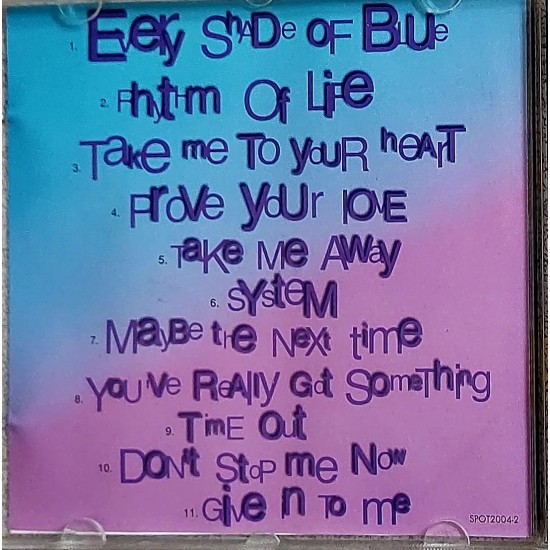 1. Every Shade of Blue
2. Rhythm Of Life
3. Take me To your heart
4. Prove your love
5. Take Me Away
6. System
7. Maybe the Next time
8. You've Really Got Something
9. Time Out
10. Don't Stop me Now
11. Give in To me
SPOT2004-2